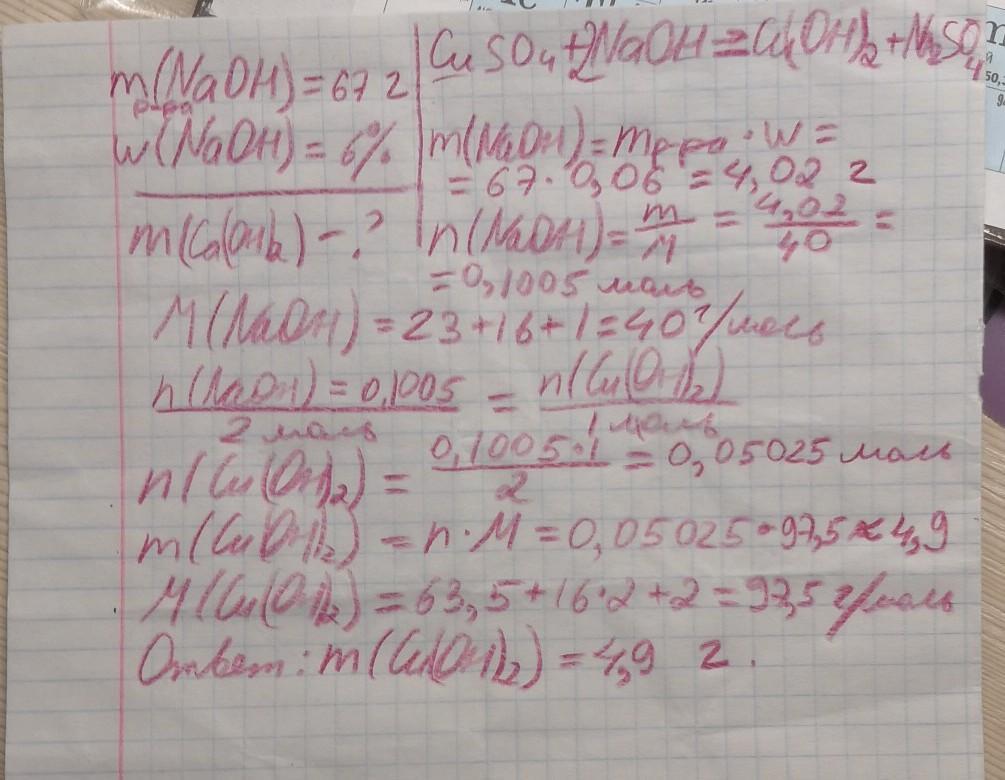 m(NaOH) = 67 г
р-ра
w(NaOH) = 6%
m(Cu(OH)2) - ?
CuSO4 + 2NaOH = Cu(OH)2 + Na2SO4
m(NaOH) = mр-ра · w =
= 67 · 0,06 = 4,02 г
n(NaOH) = m/M = 4,02/40 =
= 0,1005 моль
M(NaOH) = 23 + 16 + 1 = 40 г/моль
n(NaOH) = 0,1005 / 2 моль = n(Cu(OH)2) / 1 моль
n(Cu(OH)2) = 0,1005 · 1 / 2 = 0,05025 моль
m(Cu(OH)2) = n · M = 0,05025 · 97,5 ≈ 4,9
M(Cu(OH)2) = 63,5 + 16 · 2 + 2 = 97,5 г/моль
Ответ: m(Cu(OH)2) = 4,9 г.